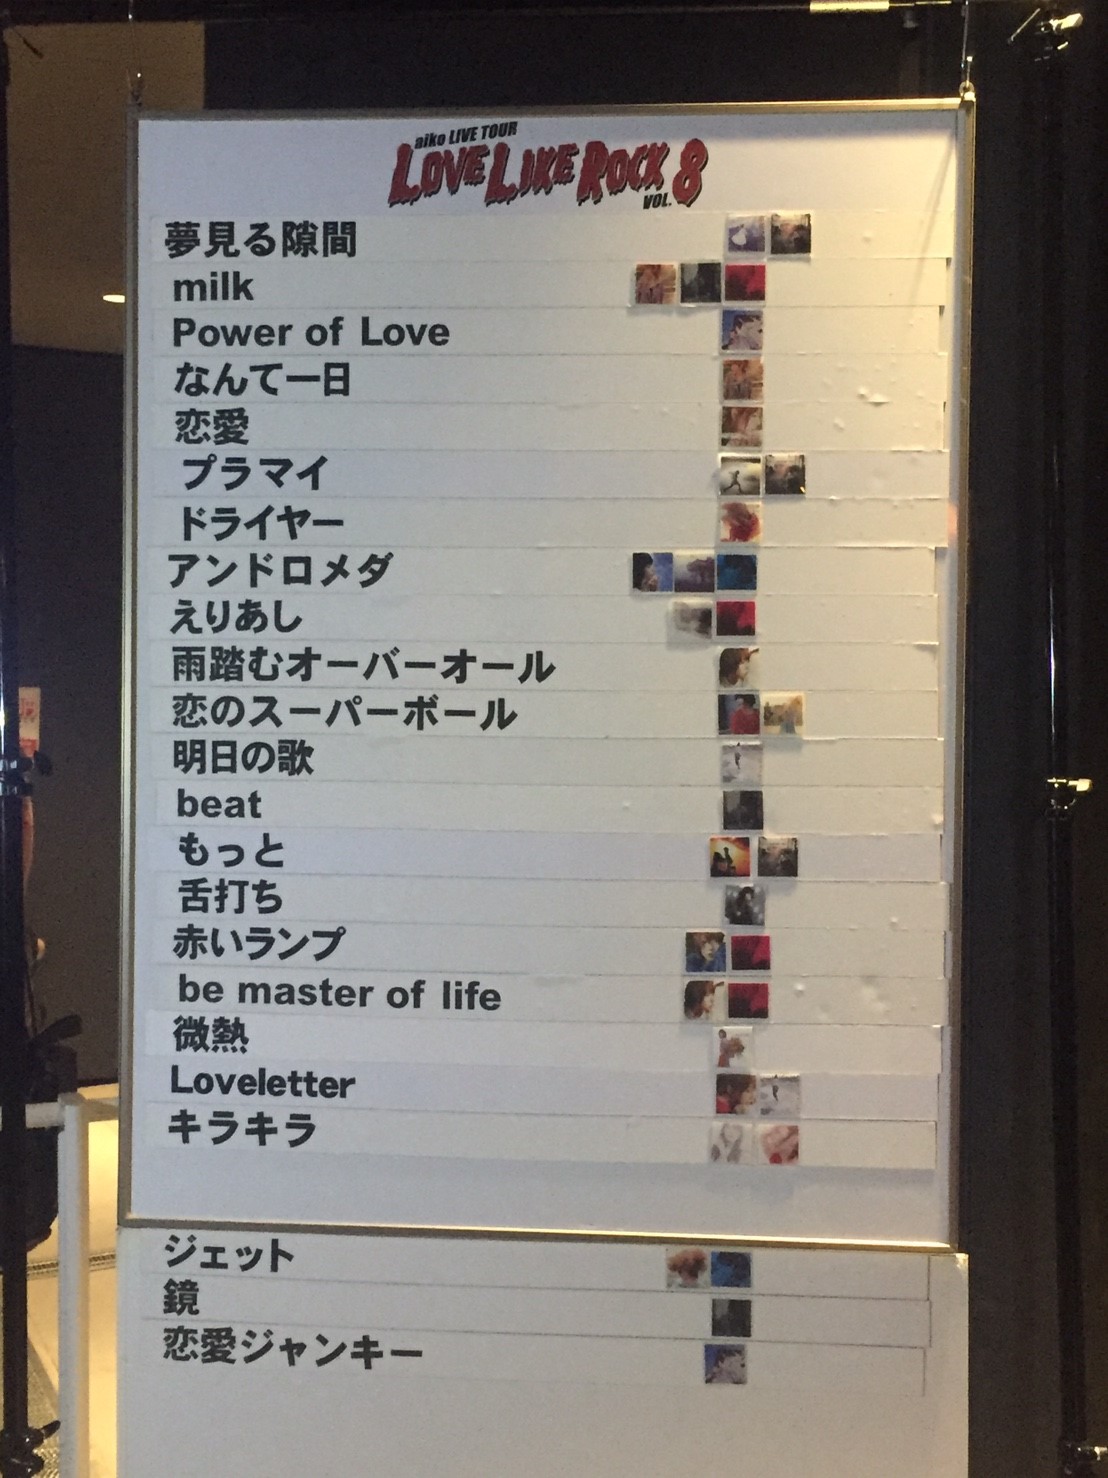 aiko LIVE TOUR
LOVE LIKE ROCK VOL.8
夢見る隙間
milk
Power of Love
なんて一日
恋愛
プラマイ
ドライヤー
アンドロメダ
えりあし
雨踏むオーバーオール
恋のスーパーボール
明日の歌
beat
もっと
舌打ち
赤いランプ
be master of life
微熱
Loveletter
キラキラ
ジェット
鏡
恋愛ジャンキー